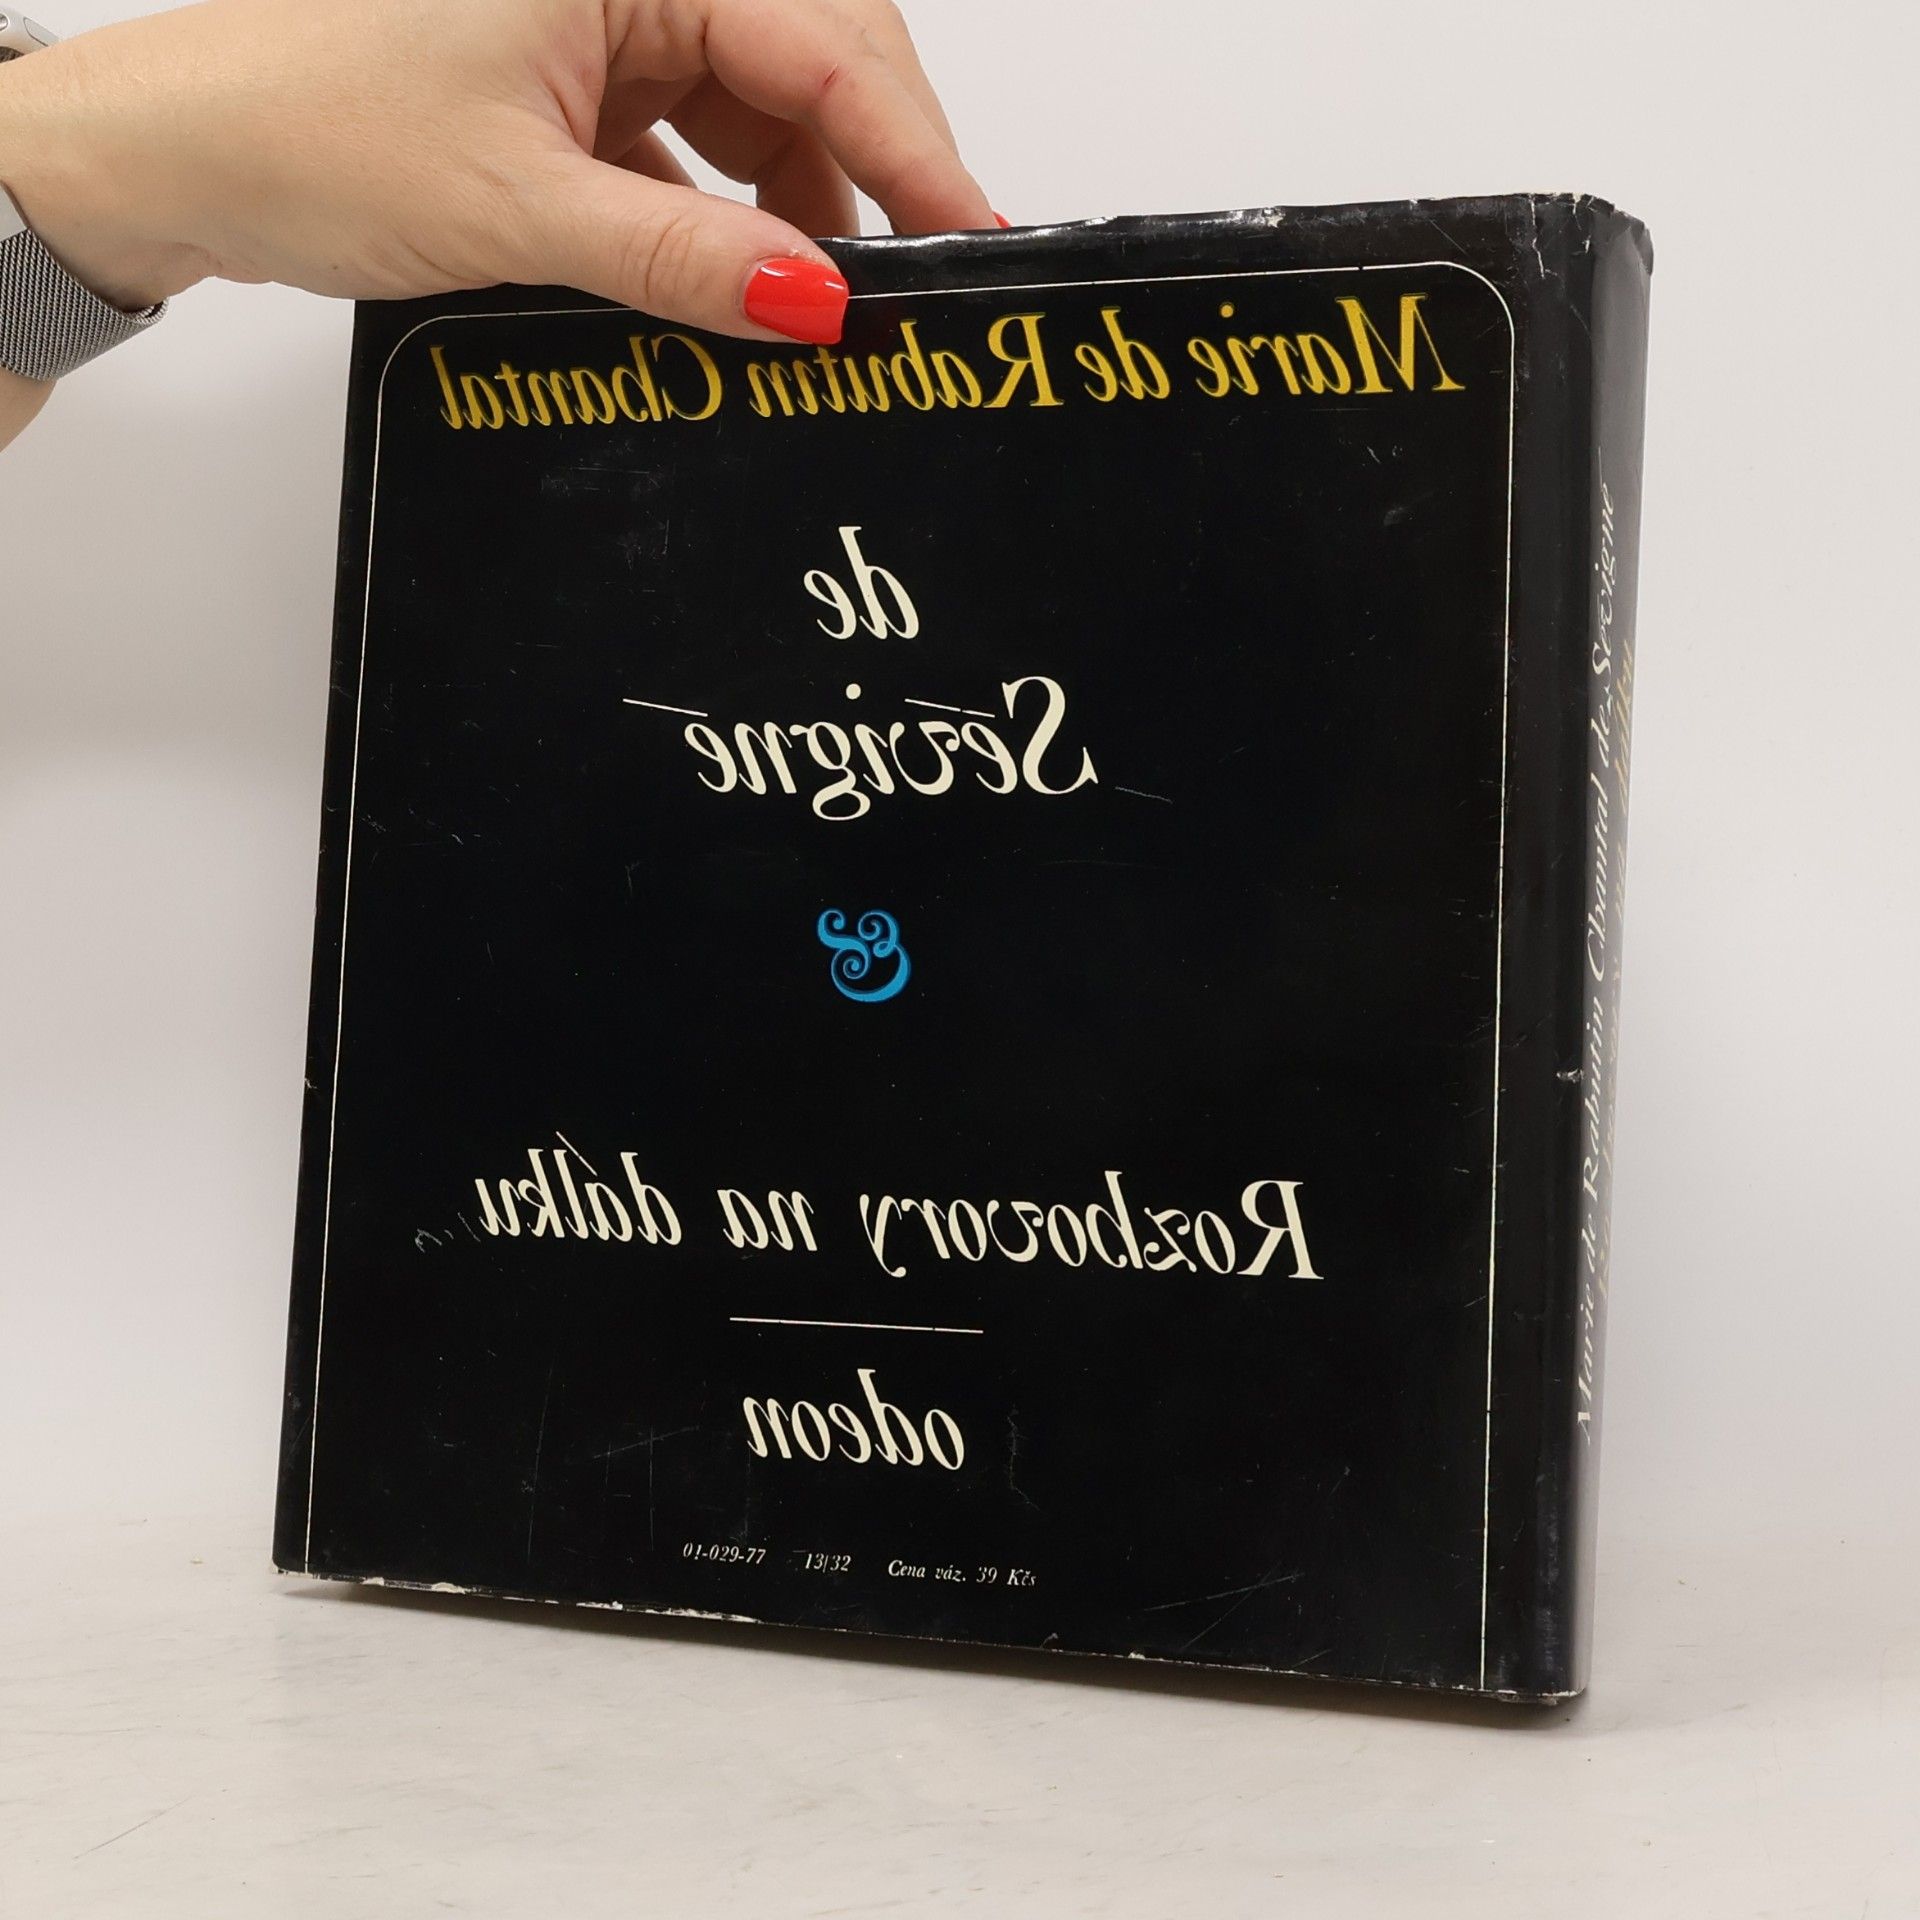 Marie de Rabutin Chantal
de
Sévigné
&
Rozhovory na dálku
odeon
01-029-77 13/32 Cena váz. 39 Kčs
Marie de Rabutin Chantal de Sévigné